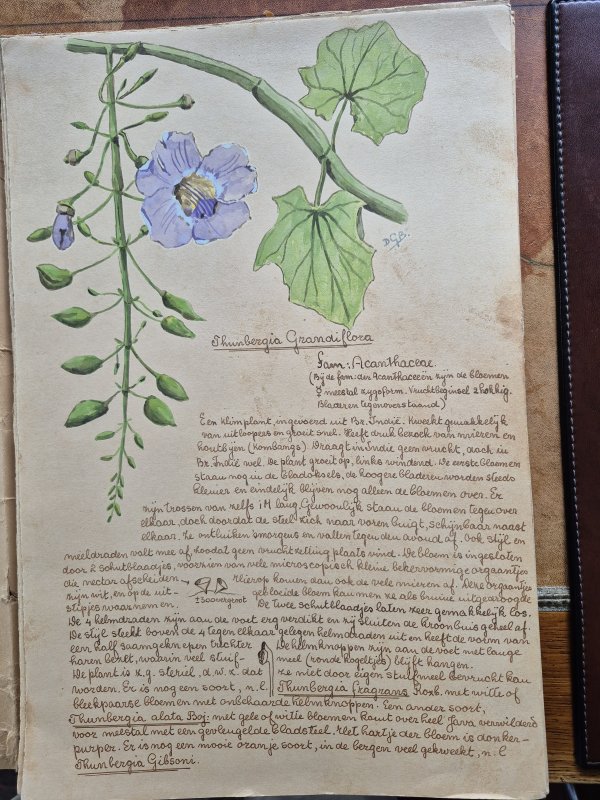 D.G.B.
Thunbergia Grandiflora
Fam: Acanthaceae.
(Bij de fam: der Acanthaceeën zijn de bloemen
☿ meestal zygoform. Vruchtbeginsel 2 hokkig.
Bladeren tegenoverstaand)
Een klimplant, ingevoerd uit Br. Indië. Kweekt gemakkelijk
van uitloopers en groeit snel. Heeft druk bezoek van mieren en
houtbijen (Kombangs). Draagt in Indië geen vrucht, doch in
Br. Indië wel. De plant groeit op, links windend. De eerste bloemen
staan nog in de bladoksels, de hoogere bladeren worden steeds
kleiner en eindelijk blijven nog alleen de bloemen over. Er
zijn trossen van zelfs 1 M lang. Gewoonlijk staan de bloemen tegen over
elkaar, doch doordat de steel zich naar voren buigt, schijnbaar naast
elkaar. Ze ontluiken smorgens en vallen tegen den avond af. Ook stijl en
meeldraden valt mee af, zoodat geen vruchtzetting plaats vind. De bloem is ingesloten
door 2 schutblaadjes, voorzien van vele microscopisch kleine bekervormige orgaantjes
die nectar afscheiden. Hierop komen dan ook de vele mieren af. Deze orgaantjes
zijn wit, en op de uit- gebloeide bloem kan men ze als bruine uitgedroogde
stipjes waarnemen. ± 300 x vergroot De twee schutblaadjes laten zeer gemakkelijk los.
De 4 helmdraden zijn aan de voet erg verdikt en zij sluiten de Kroonbuis geheel af.
De stijl steekt boven de 4 tegen elkaar gelegen helmdraden uit en heeft de vorm van
een half saamgeknepen trechter De helmknoppen zijn aan de voet met lange
haren bezet, waarin veel stuif- meel (ronde kogeltjes) blijft hangen.
De plant is z.g. steriel, d.w.z. dat ze niet door eigen stuifmeel bevrucht kan
worden. Er is nog een soort, n.l. Thunbergia fragrans Roxb. met witte of
bleekpaarse bloemen met onbehaarde helmknoppen. Een ander soort,
Thunbergia alata Boj: met gele of witte bloemen komt over heel Java verwilderd
voor meestal met een gevleugelde bladsteel. Het hartje der bloem is donker-
purper. Er is nog een mooie oranje soort, in de bergen veel gekweekt, n:l
Thunbergia Gibsoni.